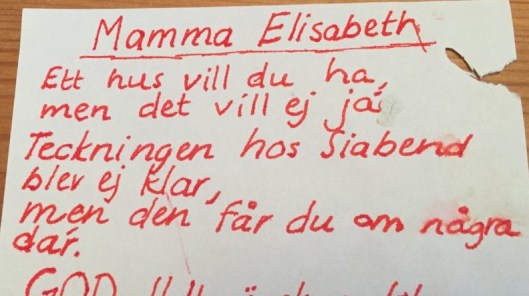 Mamma Elisabeth
Ett hus vill du ha,
men det vill ej jas
Teckningen hos Siabend
blev ej klar,
men den får du om några
dar.
GOD